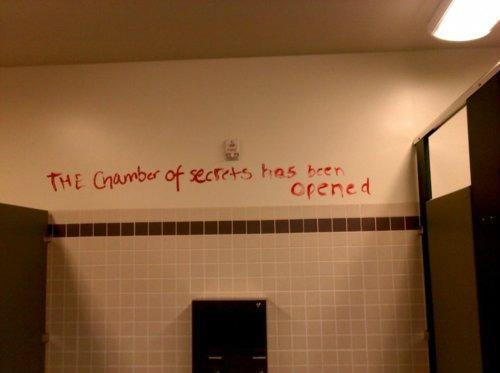 THE Chamber of secrets has been
opened